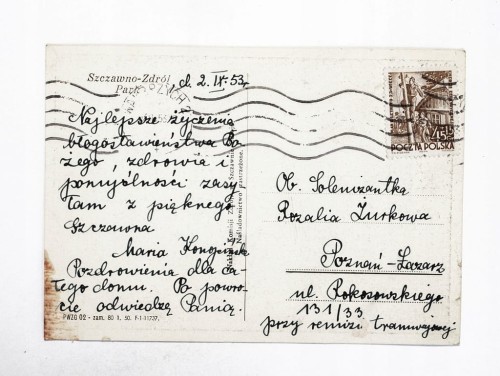 Szczawno-Zdrój
Park
d. 2. IX. 53.
Najlepsze życzenia
błogosławieństwa Bo-
żego, zdrowia i
pomyślności zasy-
łam z pięknego
Szczawna
Maria
Pozdrowienia dla ca-
łego domu. Po powro-
cie odwiedzę Panią.
PWZG 02 - zam. 80
45
POCZTA POLSKA
Ob. Solenizantka
Rozalia Żurkowa
Poznań-Łazarz
ul. Rokosowskiego
131/33
przy remizie tramwajowej